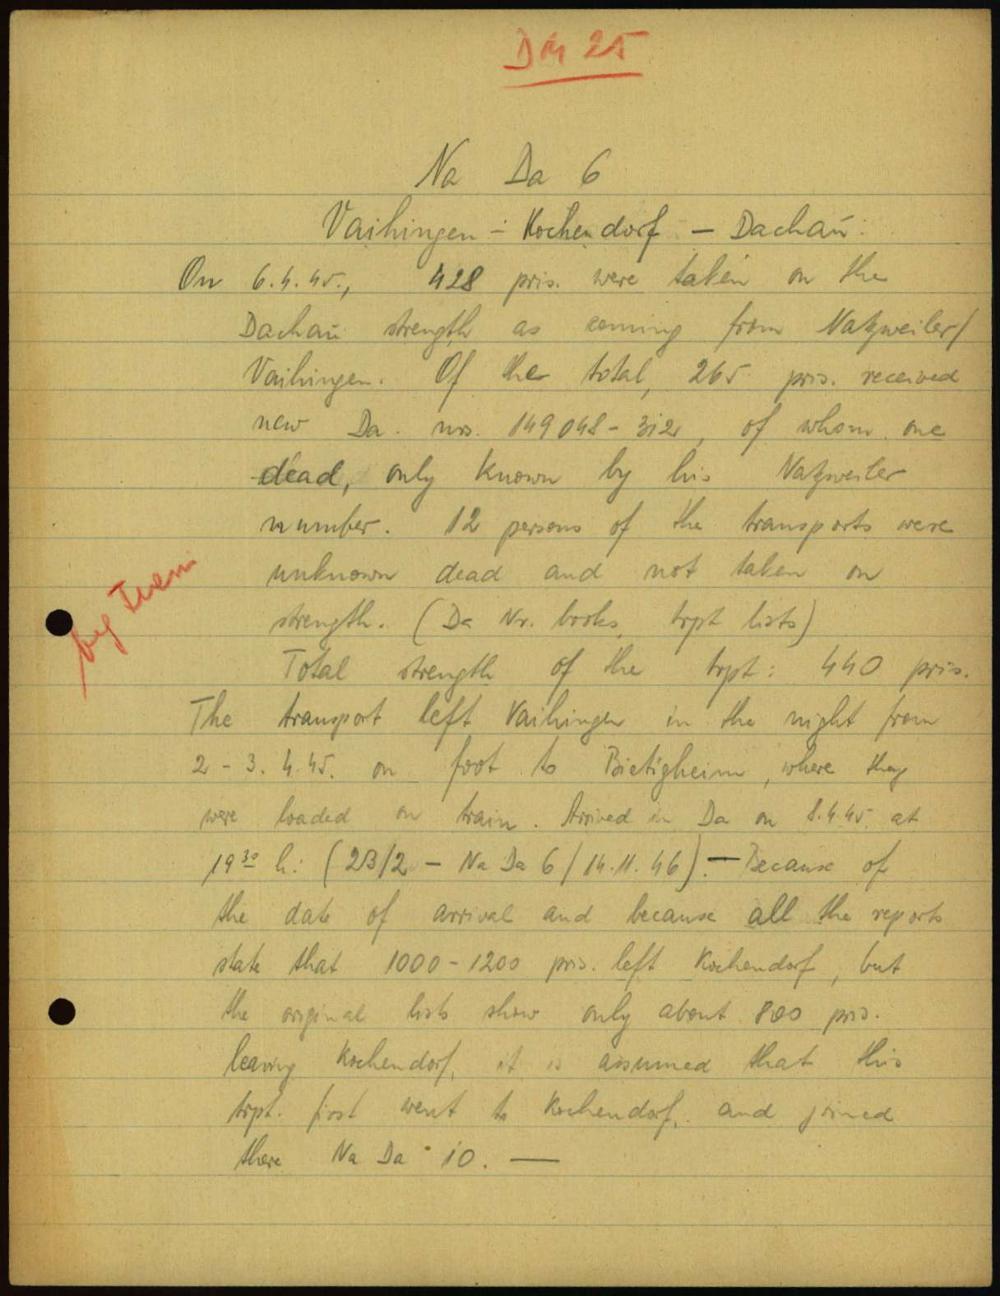 DM 25
Na Da 6
Vaihingen - Kochendorf - Dachau.
On 6.4.45., 428 pris. were taken on the
Dachau strength as coming from Natzweiler/
Vaihingen. Of the total, 265 pris. received
new Da. nrs. 149048-312, of whom one
dead, only known by his Natzweiler
number. 12 persons of the transports were
unknown dead and not taken on
strength. (Da Nr. books, trpt lists)
by
Total strength of the trpt: 440 pris.
The transport left Vaihingen in the night from
2-3.4.45. on foot to Bietigheim, where they
were loaded on train. Arrived in Da on 8.4.45 at
19³⁰ h: (2B/2 - Na Da 6/14.11.46). - Because of
the date of arrival and because all the reports
state that 1000-1200 pris. left Kochendorf, but
the original lists show only about 800 pris.
leaving Kochendorf, it is assumed that this
trpt. first went to Kochendorf, and joined
there Na Da 10. —